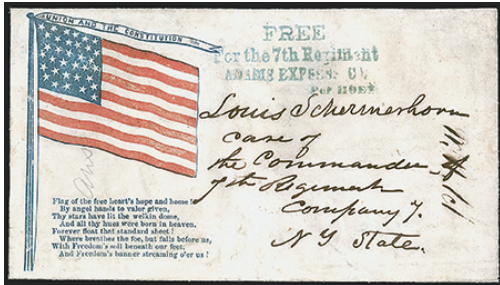 UNION AND THE CONSTITUTION
FREE
For the 7th Regiment
ADAMS EXPRESS Co
Per HOEY
Louis Schermerhorn
care of
the Commander of
7th Regiment
Company 7.
N Y State.
Flag of the free heart's hope and home!
By angel hands to valor given,
Thy stars have lit the welkin dome,
And all thy hues were born in heaven.
Forever float that standard sheet!
Where breathes the foe, but falls before us,
With Freedom's soil beneath our feet,
And Freedom's banner streaming o'er us!